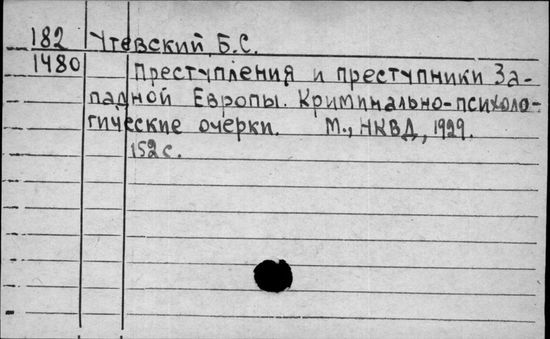 182 Утевский, Б.С.
1480 Преступления и преступники За-
падной Европы. Криминально-психоло-
гические очерки. М., НКВД, 1929.
152 с.